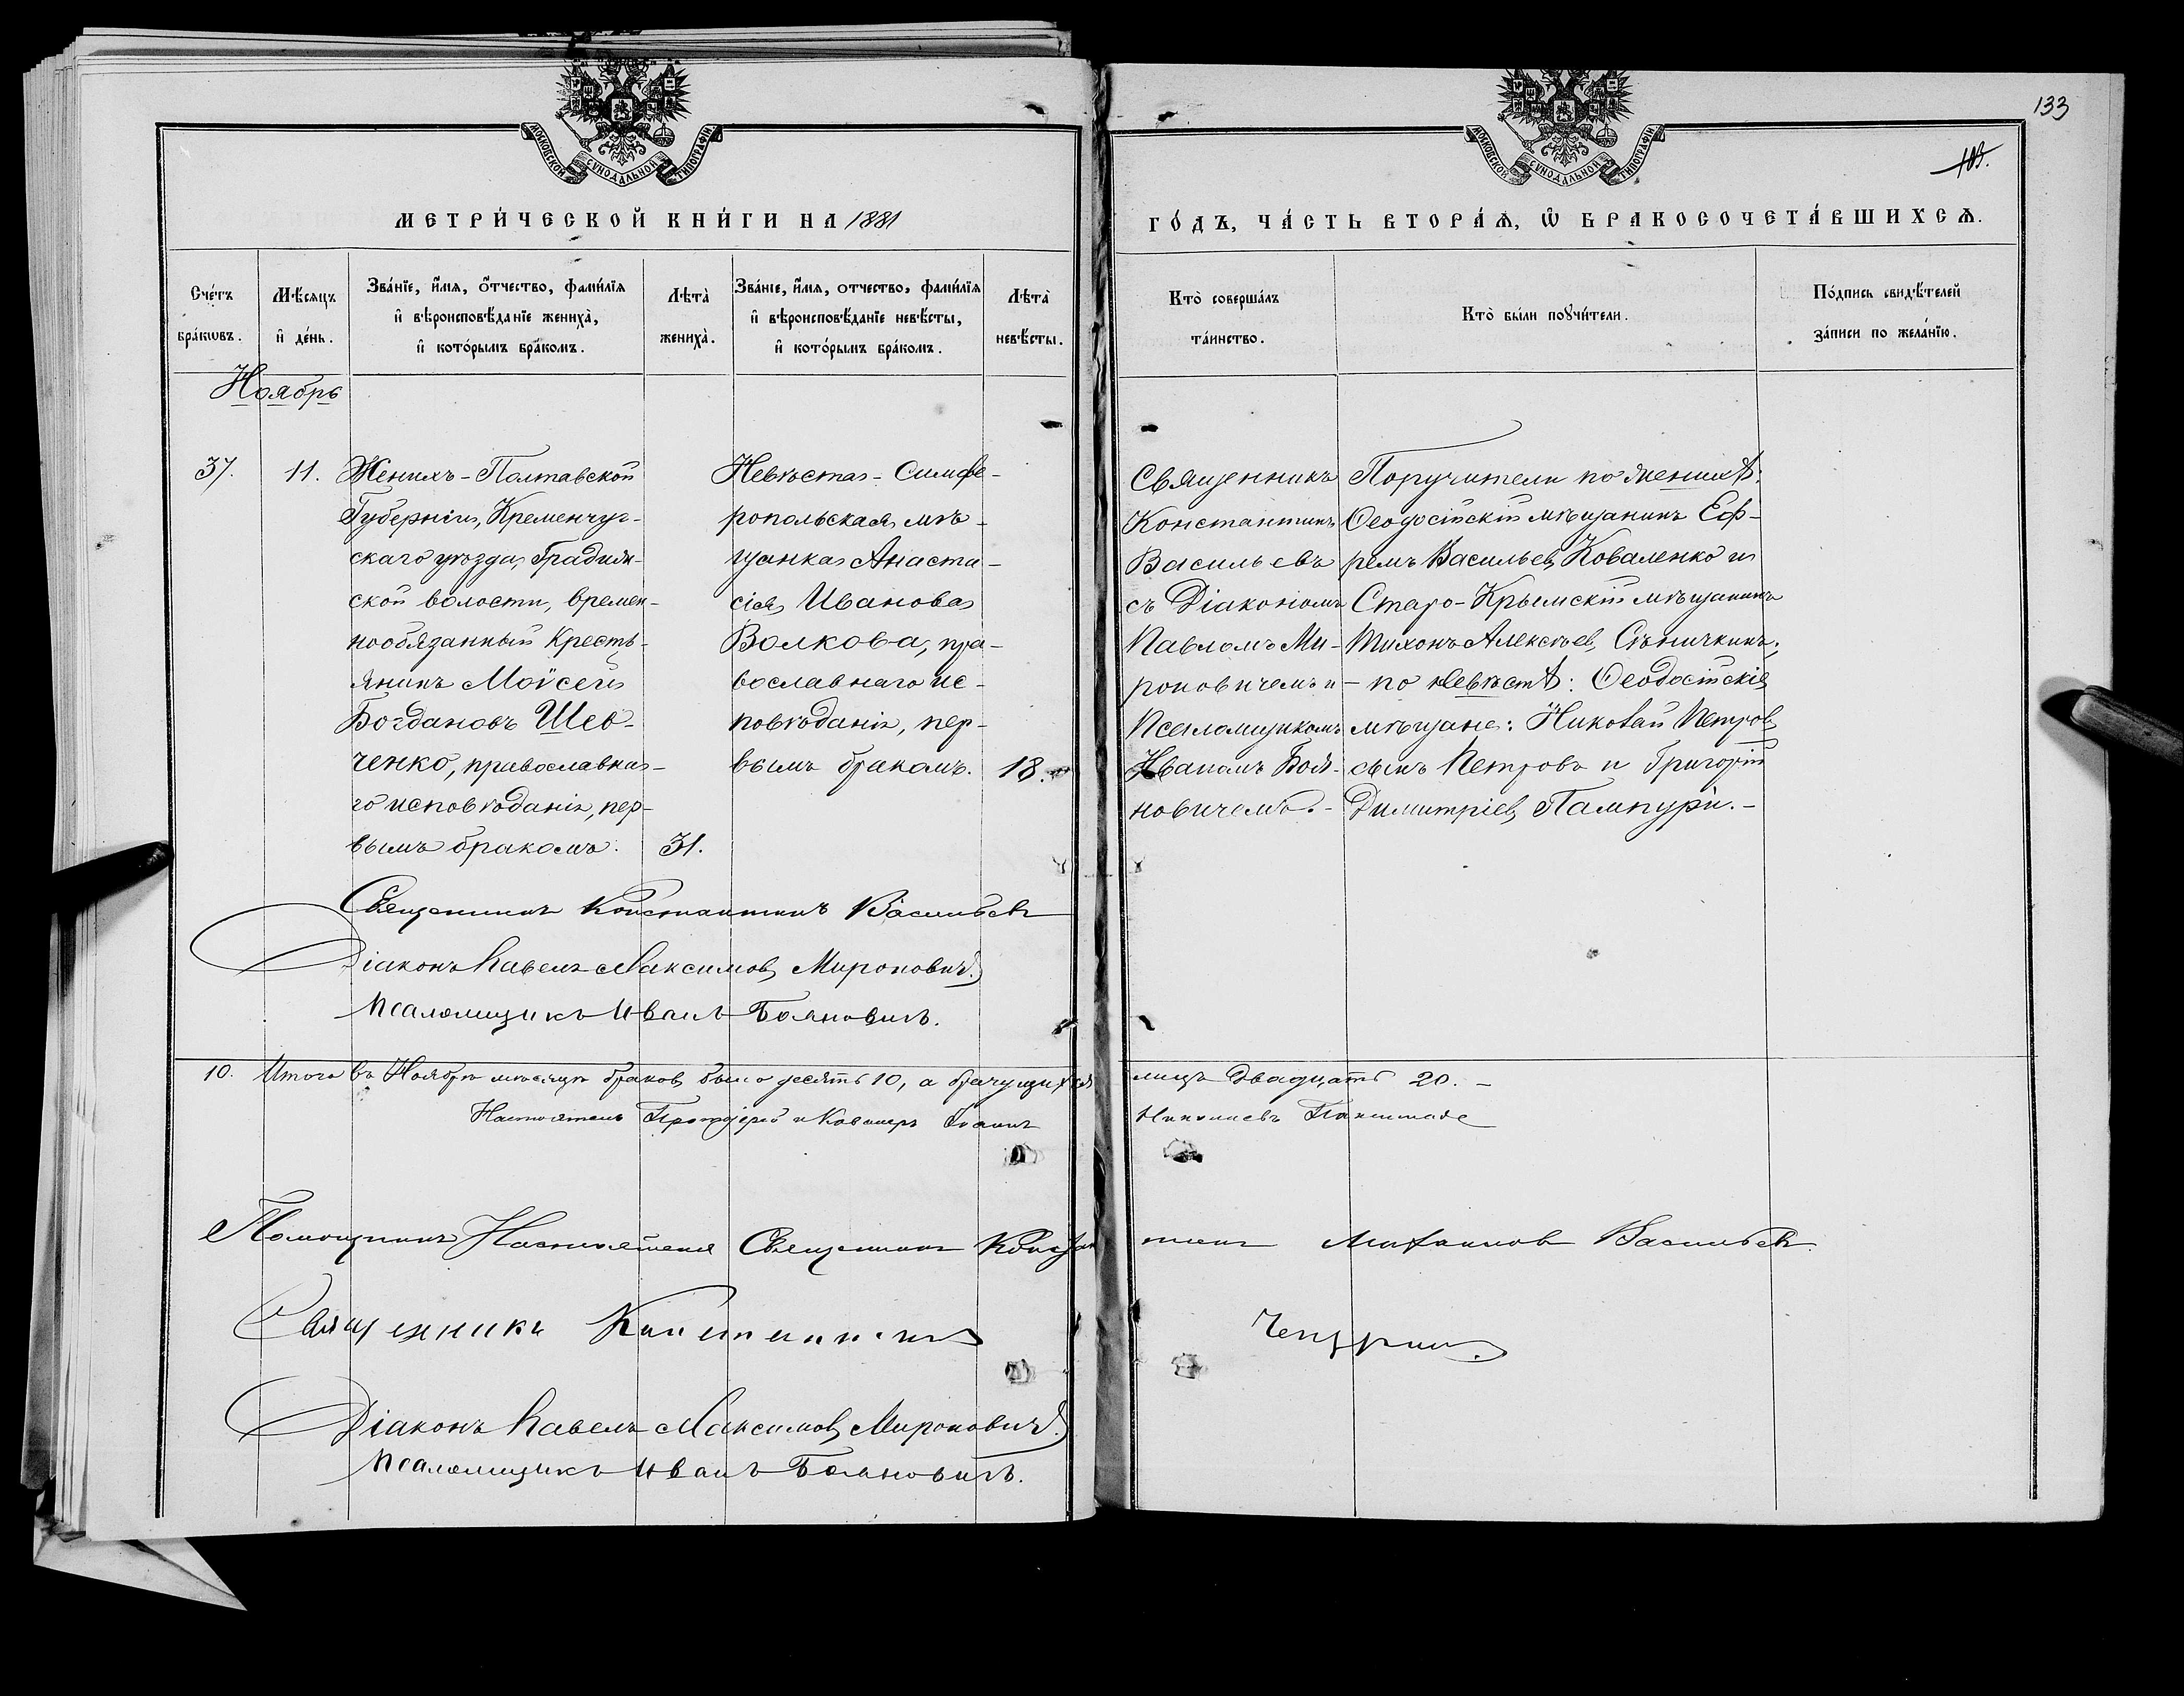 133
МОСКОВСКОЙ СУНОДАЛЬНОЙ ТИПОГРАФІИ
МОСКОВСКОЙ СУНОДАЛЬНОЙ ТИПОГРАФІИ
МЕТРИ́ЧЕСКОЙ КНИ́ГИ НА 1881
ГО́ДЪ, ЧА́СТЬ ВТОРА́Ѧ, Ѿ БРАКОСОЧЕТА́ВШИХСѦ.
Сче́тъ
бра́кѡвъ.
Мѣ́сяцъ
и҆ де́нь.
Зва́нїе, и҆́мя, ѻ҆́тчество, фами́лїя
и҆ вѣроисповѣ́данїе жениха̀,
и҆ кото́рымъ бра́комъ.
Лѣта̀
жениха̀.
Зва́нїе, и҆́мя, отчество, фами́лїя
и҆ вѣроисповѣ́данїе невѣ́сты,
и҆ кото́рымъ бра́комъ.
Лѣта̀
невѣ́сты.
Кто̀ соверша́лъ
та́инство.
Кто̀ бы́ли пороучи́тели.
По́дпись свидѣ́телей
за́писи по жела́нїю.
Ноябрь
37.
11.
Женихъ - Полтавской
Губерніи, Кременчуг-
скаго уѣзда, Градиж-
ской волости, времен-
нообязанный Кресть-
янинъ Моѵсей
Богдановъ Шев-
ченко, православна-
го исповѣданія, пер-
вымъ бракомъ.
31.
Невѣста - Симфе-
ропольская мѣ-
щанка Анаста-
сія Иванова
Волкова, пра-
вославнаго ис-
повѣданія, пер-
вымъ бракомъ.
18.
Священникъ
Константинъ
Васильевъ
съ Діакономъ
Павломъ Ми-
роновичемъ и
Псаломщикомъ
Иваномъ Боя-
новичемъ. -
Поручители по женихѣ:
Ѳеодосійскій мѣщанинъ Еф-
ремъ Васильев Коваленко и
Старо-Крымскій мѣщанинъ
Тихонъ Алексѣев Сѣничкинъ;
- по невѣстѣ: Ѳеодосійскіе
мѣщане: Николай Петров
сынъ Петровъ и Григорій
Димитріев Пампури. -
Священникъ Константинъ Васильевъ
Діаконъ Павелъ Максимов Мироновичъ.
Псаломщикъ Иванъ Бояновичъ.
10. Итого въ Ноябрѣ мѣсяцѣ браков было десять 10, а брачущихся лицъ двадцать 20. -
Настоятель Протоіерей и Кавалеръ Іоаннъ Николаевъ
Помощникъ Настоятеля Священникъ Константинъ Михаилов Васильевъ.
Священникъ Константинъ
Діаконъ Павелъ Максимов Мироновичъ.
Псаломщикъ Иванъ Бояновичъ.